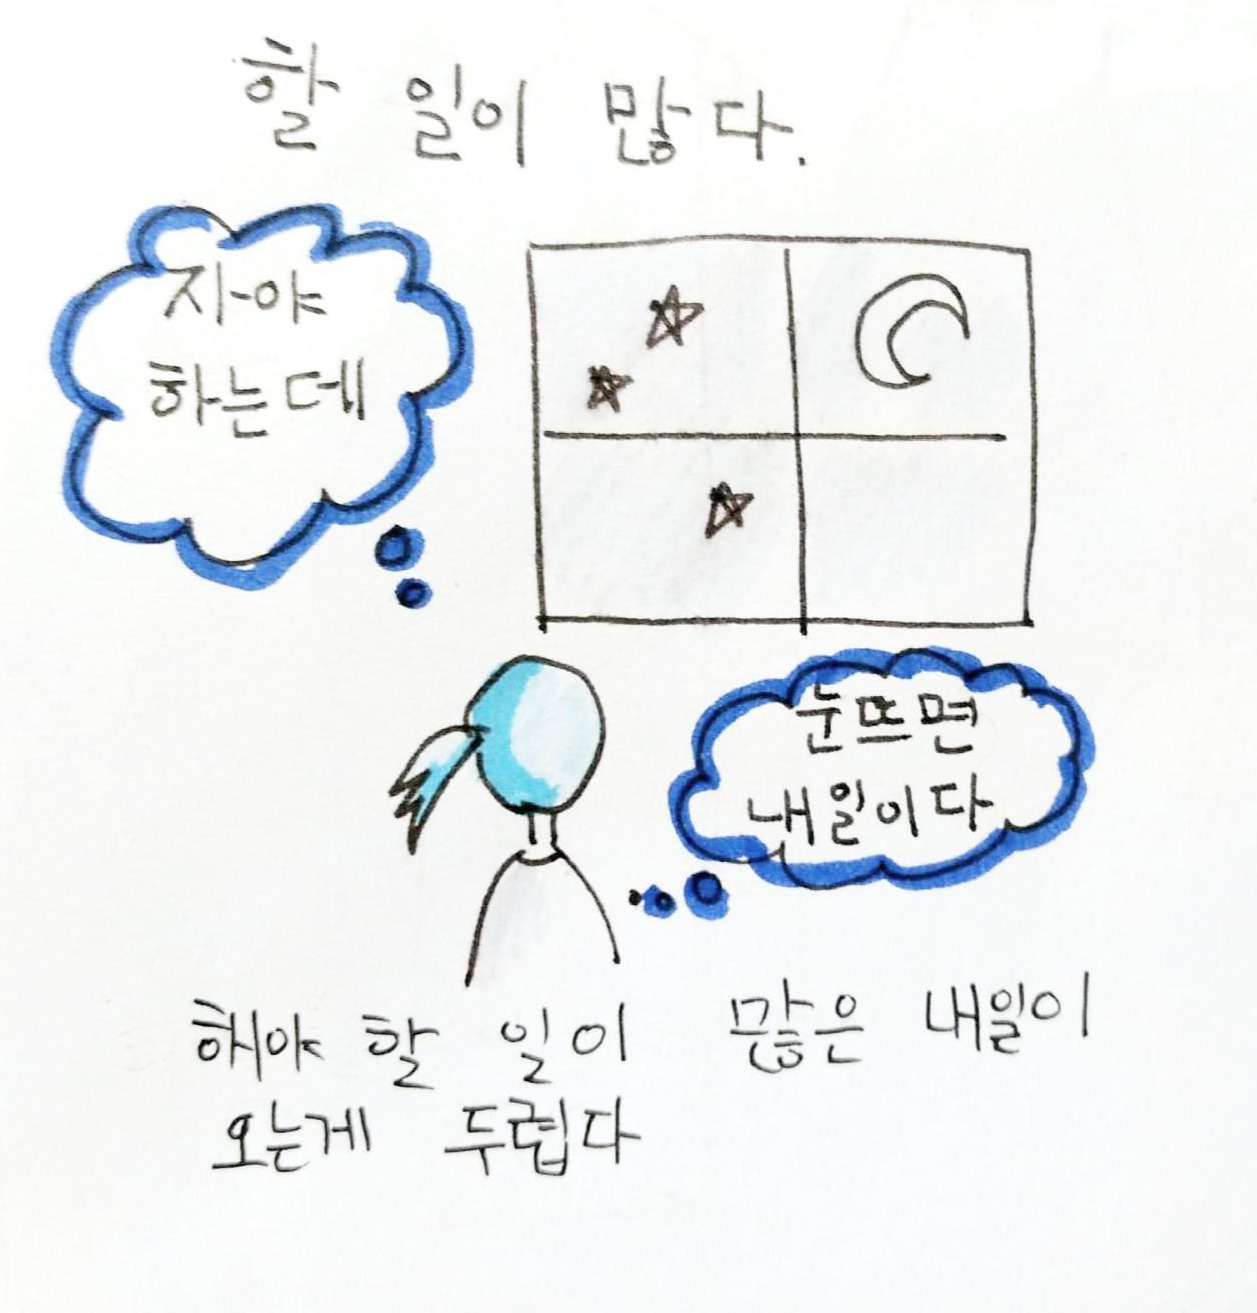 할 일이 많다.
자야
하는데
눈뜨면
내일이다
해야 할 일이 많은 내일이
오는게 두렵다